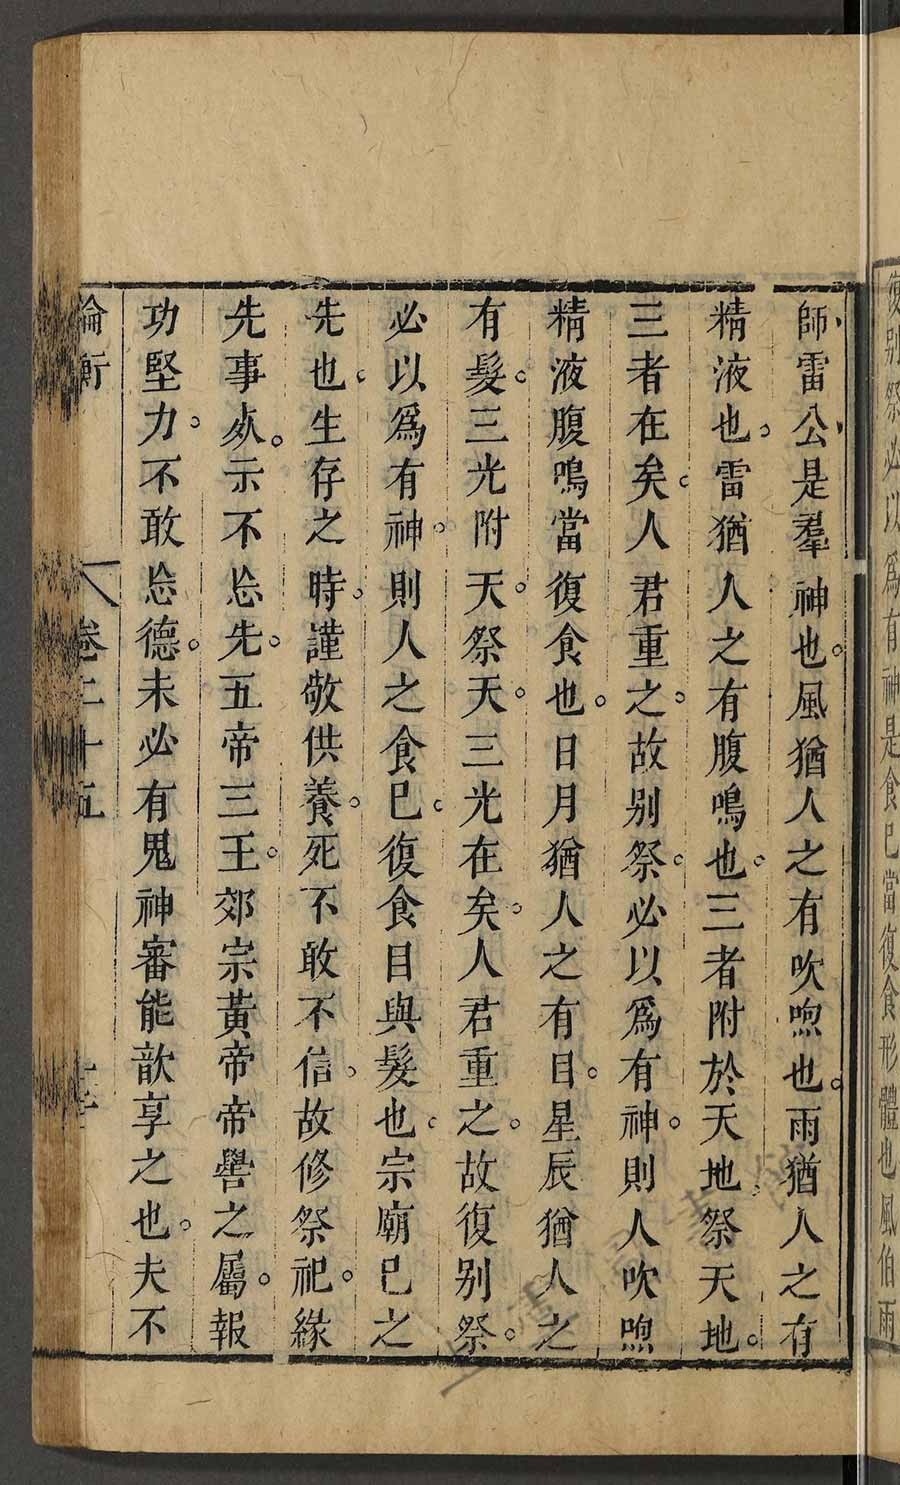 復別祭必以爲有神是食已當復食形體也風伯雨
師雷公是羣神也。風猶人之有吹喣也。雨猶人之有
精液也。雷猶人之有腹鳴也。三者附於天地祭天地。
三者在矣。人君重之。故別祭。必以爲有神。則人吹喣
精液腹鳴當復食也。日月猶人之有目。星辰猶人之
有髮。三光附天。祭天。三光在矣。人君重之。故復別祭。
必以爲有神。則人之食已。復食目與髮也。宗廟已之
先也。生存之時。謹敬供養。死不敢不信。故修祭祀。緣
先事死。示不忘先。五帝三王。郊宗黃帝帝嚳之屬。報
功堅力。不敢忘德。未必有鬼神審能歆享之也。夫不
論衡 卷二十五 十三